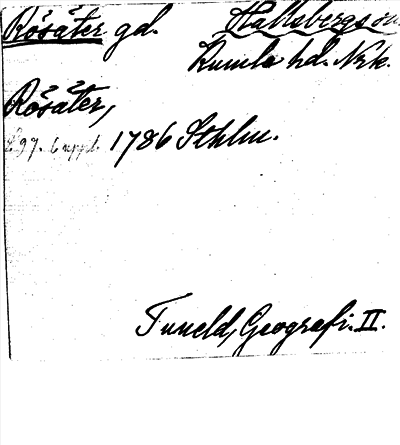 Rösäter gd. Hallsbergs sn
Kumla hd. Nrk.
Rösäter,
297. 6 uppl. 1786 Sthlm.
Tuneld, Geografi. II.